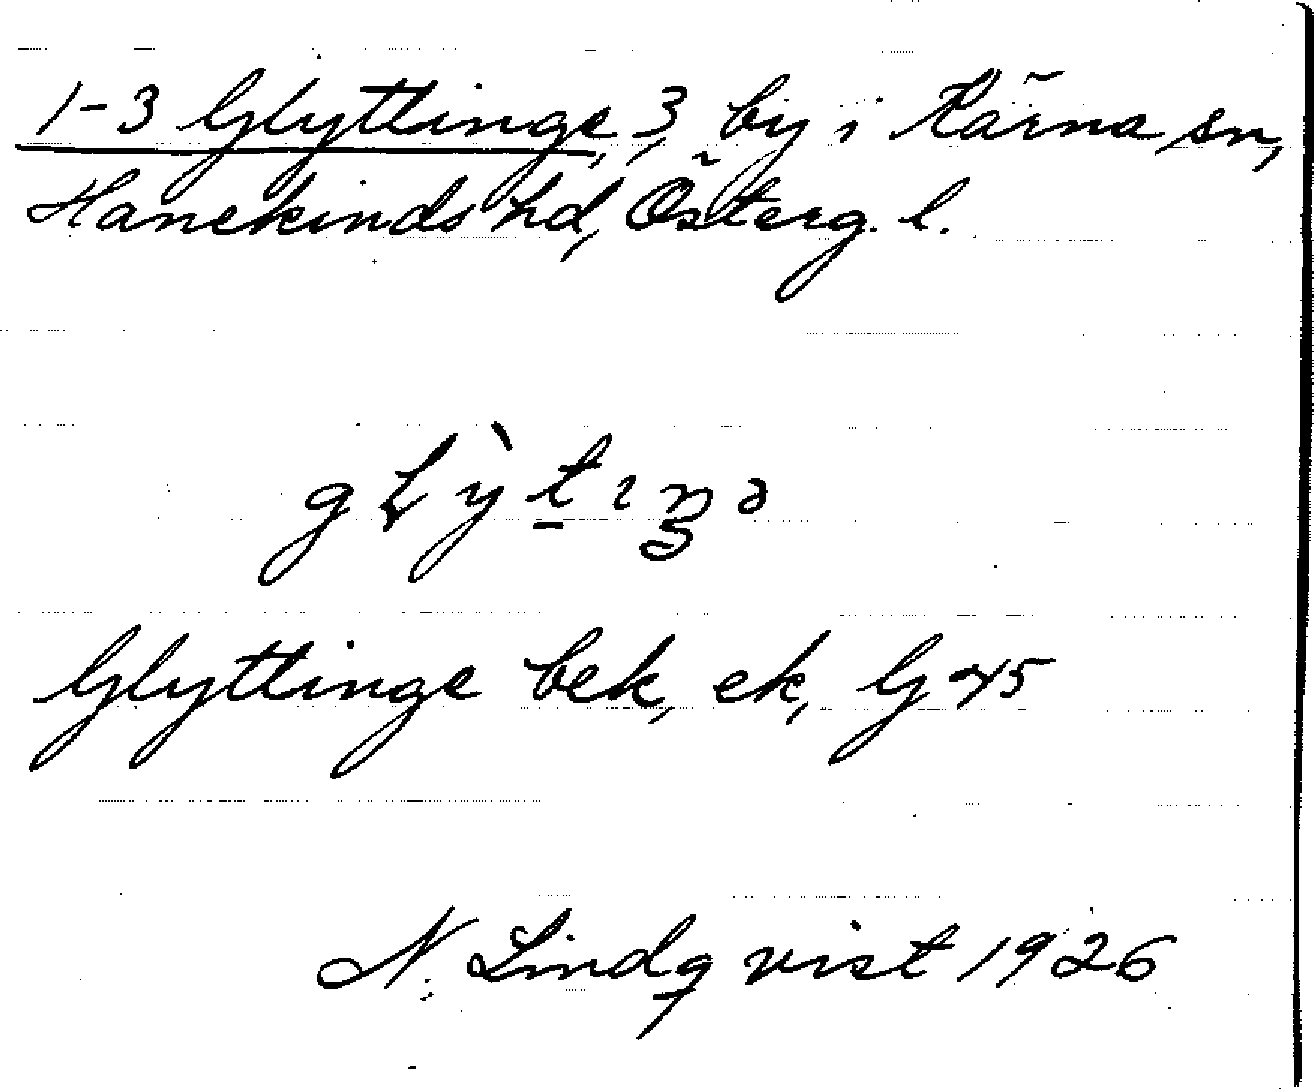 1-3 Glyttinge, 3, by i Kärna sn,
Hanekinds hd, Österg. l.
gLỳtıŋə
Glyttinge bek, ek, G 45
N. Lindqvist 1926